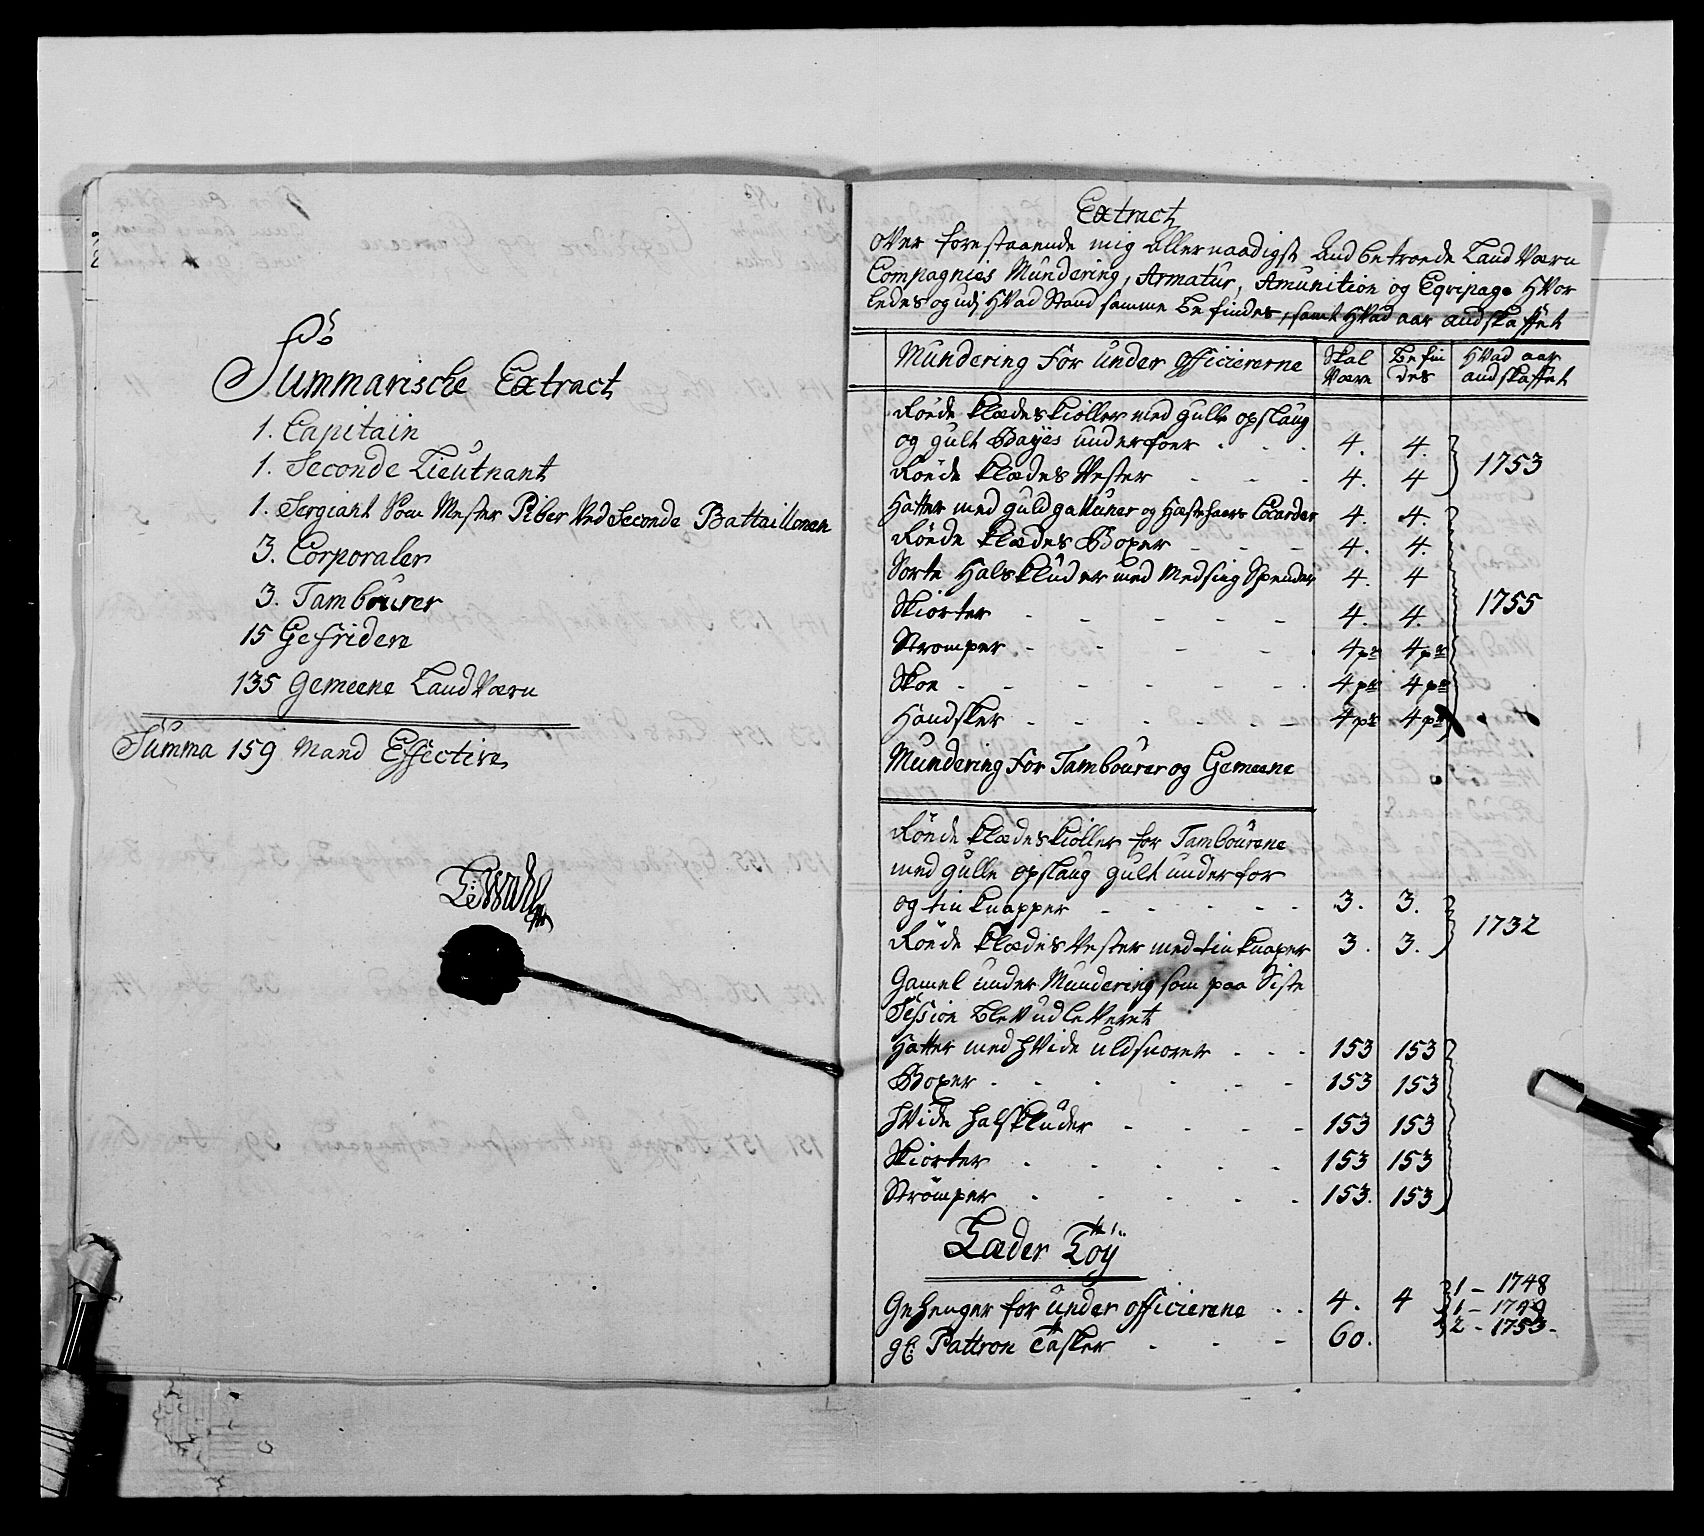 Summarische Extract
1. Capitain
1. Seconde Lieutnant
1. Sergiant Som Mester Piber Ved Seconde Battaillonen
3. Corporaler
3. Tambourer
15 Gefridere
135 Gemeene Land Værn
Summa 159 Mand Effective
Extract
over forestaaende mig allernaadigst andbetroede Land Værn
Compagnies Mundering, Armatur, Amunition og Eqvipage Hvor
ledes og udj Hvad Stand samme Befindes, samt Hvad aar andskaffet
Mundering for under officiererne Skal Være Befindes Hvad aar andskaffet
Röede klædes kioller med gulle opslaug
og gult Bayes underfoer 4. 4.
Röede klædes Vester 4. 4 1753
Hatter med guld galluner og Hæstehaars Cocarder 4. 4.
Röede klædes Boxer 4. 4.
Sorte Halskluder med Medsing Spender 4. 4
Skiorter 4. 4. 1755
Stromper 4 pr 4 pr
Skoe 4 pr 4 pr
Handsker 4 pr 4 pr
Mundering for Tambourer og Gemeene
Röede klædes kioller for Tambourene
med gulle opslaug gult underfor
og tin knapper 3. 3. 1732
Röede klædes Vester med tin knaper 3. 3.
Gamel under Mundering som paa Siste
Session blev udleveret
Hatter med Hvide uldsnorer 153 153
Boxer 153 153
Hvide Halskluder 153 153
Skiorter 153 153
Strömper 153. 153
Læder Töy
Gehenger for under officierene 4. 4 1 - 1748
1 - 1749
2 - 1753
gl: Pattron Tasker 60.